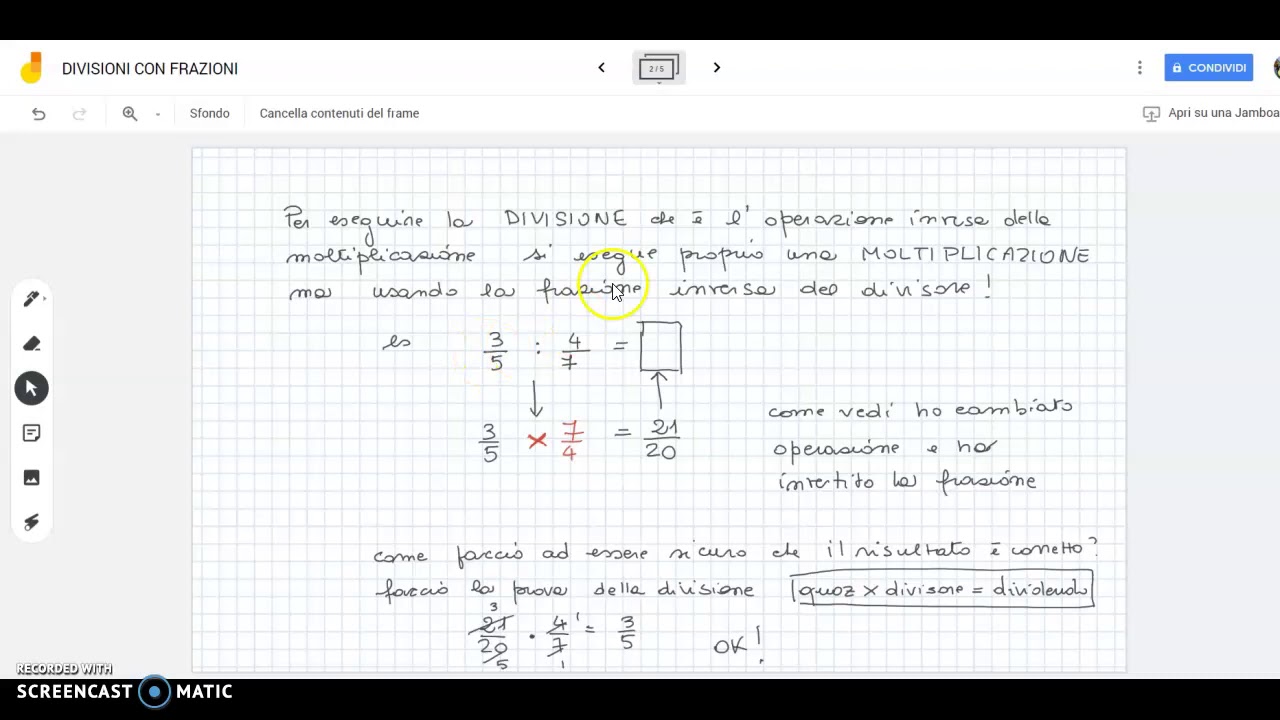 DIVISIONI CON FRAZIONI
2 / 5
CONDIVIDI
Sfondo
Cancella contenuti del frame
Apri su una Jamboa
Per eseguire la DIVISIONE che è l'operazione inversa della
moltiplicazione si esegue proprio una MOLTIPLICAZIONE
ma usando la frazione inversa del divisore!
es 3/5 : 4/7 =
3/5 × 7/4 = 21/20
come vedi ho cambiato
operazione e ho
invertito la frazione
come faccio ad essere sicuro che il risultato è corretto?
faccio la prova della divisione quoz × divisore = dividendo
3 1
21/20 · 4/7 = 3/5 OK!
5 1
RECORDED WITH
SCREENCAST MATIC